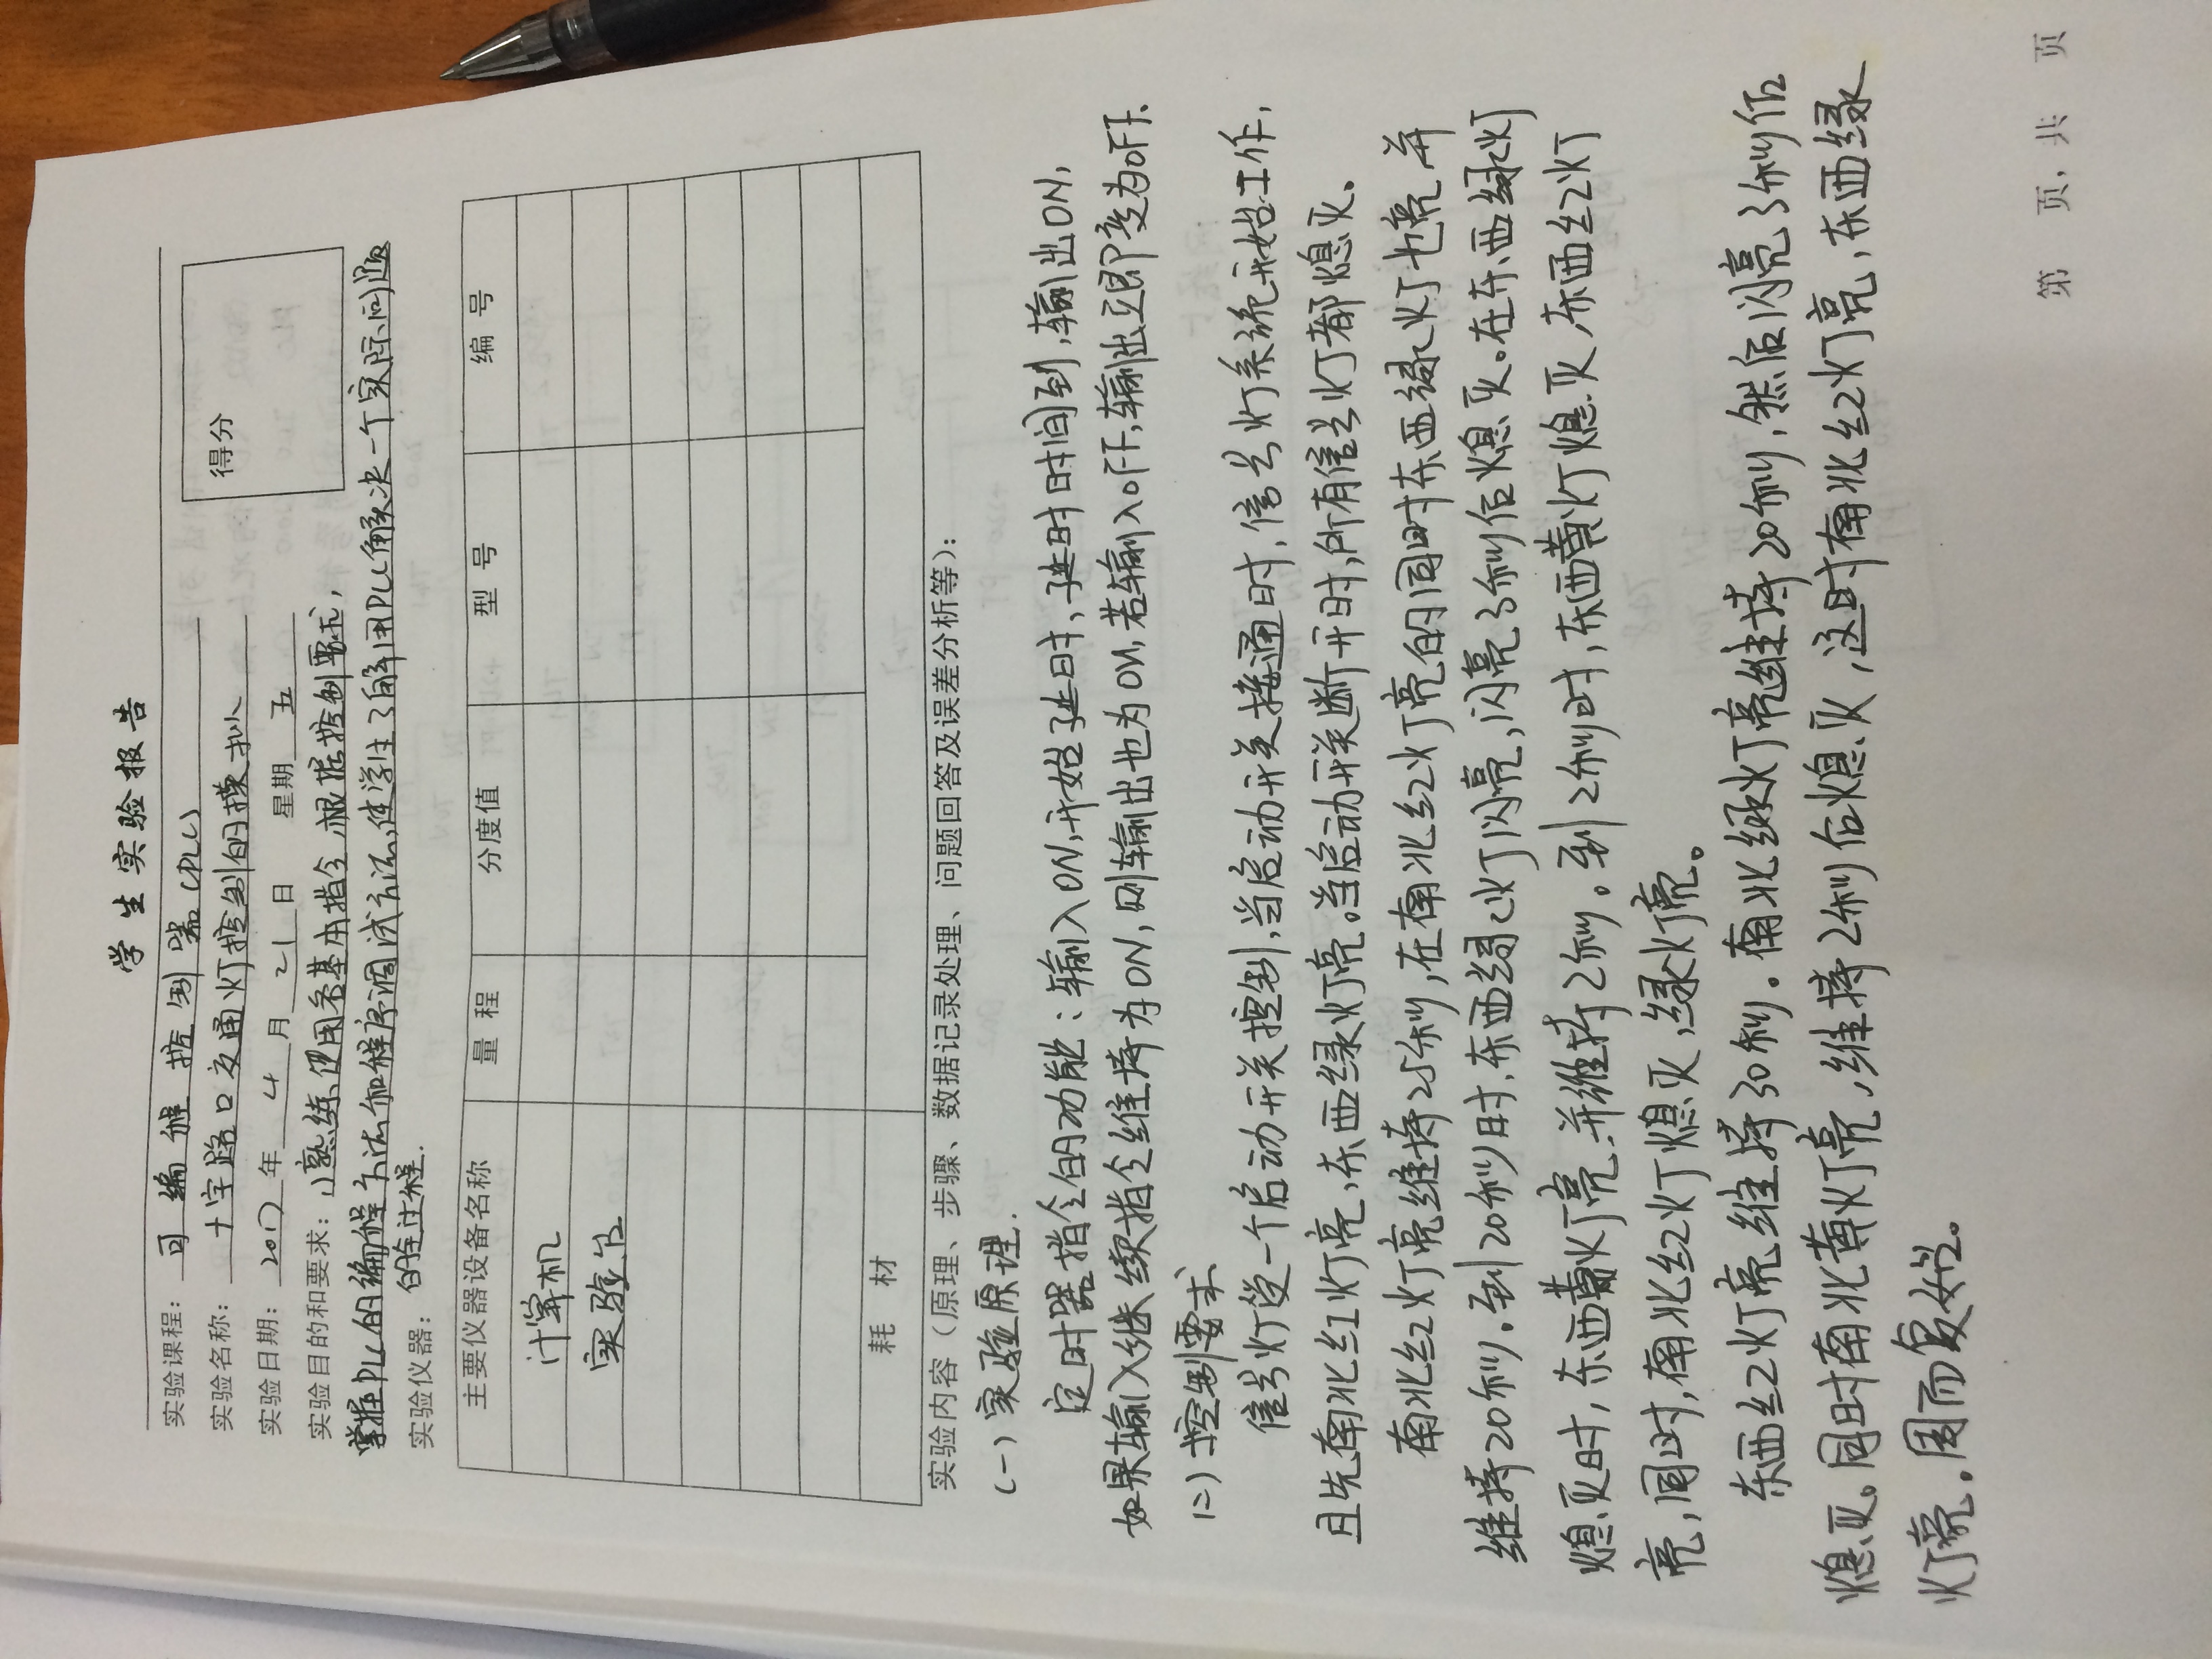 学生实验报告
得分
实验课程: 可编程控制器(PLC)
实验名称: 十字路口交通灯控制的模拟
实验日期: 2017年4月21日 星期五
实验目的和要求: 1)熟练使用各基本指令,根据控制要求,
掌握PLC的编程方法和程序调试方法,使学生了解用PLC解决一个实际问题
的全过程.
实验仪器:
主要仪器设备名称 量程 分度值 型号 编号
计算机
实验台
耗材
实验内容(原理、步骤、数据记录处理、问题回答及误差分析等):
(一)实验原理.
定时器指令的功能:输入ON,开始延时,延时时间到,输出ON,
如果输入继续指令维持为ON,则输出也为ON,若输入OFF,输出立即变为OFF.
(二)控制要求
信号灯受一个启动开关控制,当启动开关接通时,信号灯系统开始工作,
且先南北红灯亮,东西绿灯亮。当启动开关断开时,所有信号灯都熄灭。
南北红灯亮维持25秒,在南北红灯亮的同时东西绿灯也亮并
维持20秒。到20秒时,东西绿灯闪亮,闪亮3秒后熄灭。在东西绿灯
熄灭时,东西黄灯亮,并维持2秒。到2秒时,东西黄灯熄灭,东西红灯
亮,同时,南北红灯熄灭,绿灯亮。
东西红灯亮维持30秒。南北绿灯亮维持20秒,然后闪亮3秒后
熄灭。同时南北黄灯亮,维持2秒后熄灭,这时南北红灯亮,东西绿
灯亮。周而复始。
第 页,共 页